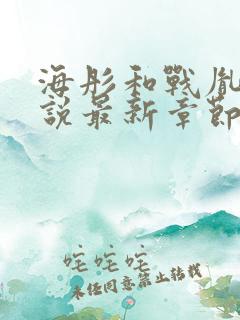 海彤和戰胤
說最新章節
咤咤咤
未经同意禁止转载